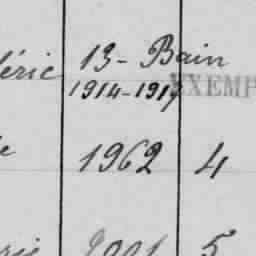 éric 13- Bain
1914-1917 EXEMP
e 1962 4
rie 2001 5